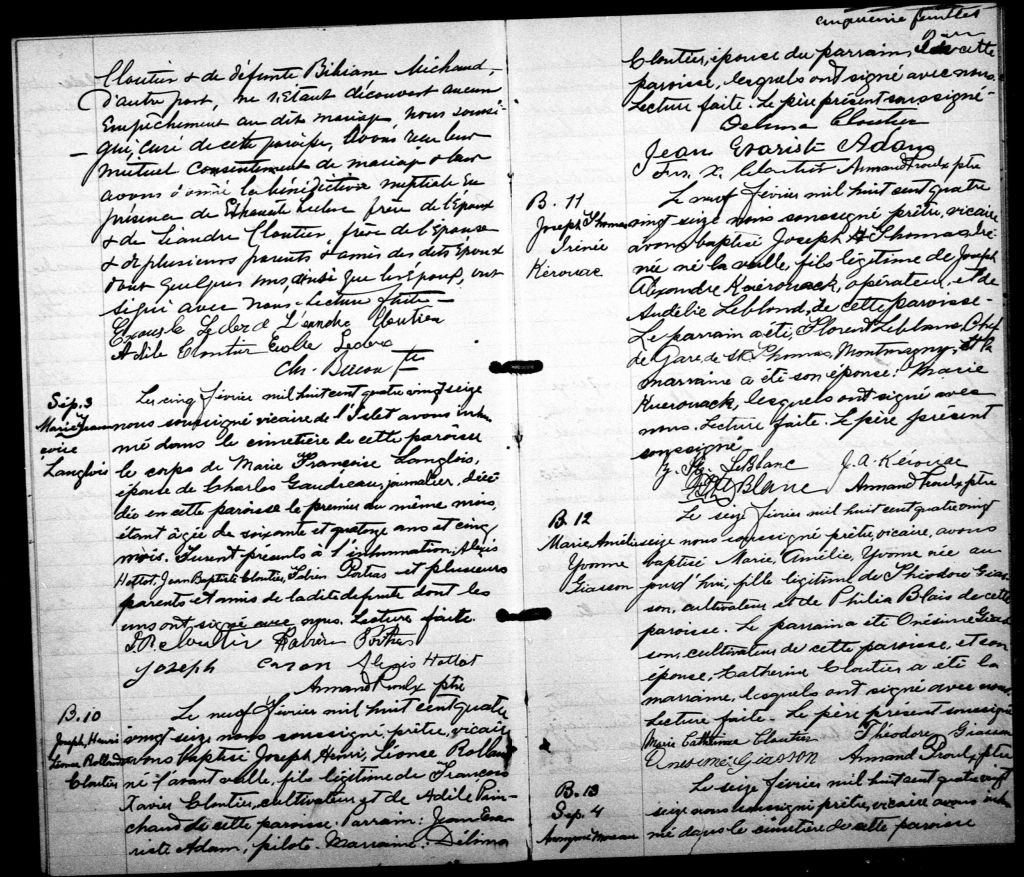 Cloutier & de défunte Bibiane Michaud,
d'autre part, ne s'étant découvert aucun
empêchement au dit mariage nous soussi-
gné, curé de cette paroisse, avons reçu leur
mutuel consentement de mariage & leur
avons donné la bénédiction nuptiale en
présence de Leclerc frère de l'Epoux
& de Liandre Cloutier, frère de l'Epouse
& de plusieurs parents & amis des dits Epoux
dont quelques uns, ainsi que les Epoux, ont
signé avec nous. Lecture faite.
Leclerc Léandre Cloutier
Adèle Cloutier Leclerc
Chs. Bacon Ptre
Sép. 3
Marie Fran
çoise
Langlois
Le cinq février mil huit cent quatre vingt seize
nous soussigné vicaire de l'Islet avons inhu
mé dans le cimetière de cette paroisse
le corps de Marie Françoise Langlois,
épouse de Charles Gaudreau, journalier, décé
dée en cette paroisse le premier du même mois,
étant âgée de soixante et quatorze ans et cinq
mois. Furent présents à l'inhumation: Alexis
Hottot, Jean Baptiste Cloutier, Fabien Poitras et plusieurs
parents et amis de la dite defunte dont les
uns ont signé avec nous. Lecture faite.
J.B. Cloutier Fabien Poitras
Joseph Caron Alexis Hottot
Armand Proulx ptre
B. 10
Joseph, Henri
Léonce Rolland
Cloutier
Le neuf février mil huit cent quatre
vingt seize nous soussigné, prêtre, vicaire
avons baptisé Joseph Henri, Léonce Rolland
né l'avant veille, fils légitime de François
Xavier Cloutier, cultivateur et de Adèle Pain-
chaud de cette paroisse. Parrain: Jean Eva-
riste Adam, pilote. Marraine: Délima
cinquième feuillet
Cloutier, épouse du parrain, de cette
paroisse, lesquels ont signé avec nous.
Lecture faite. Le père présent soussigné.
Delima Cloutier
Jean Evariste Adam
Frs. X. Cloutier Armand Proulx ptre
B. 11
Joseph Thomas
Irénée
Kérouac
Le neuf février mil huit cent quatre
vingt seize nous soussigné prêtre, vicaire
avons baptisé Joseph Thomas Iré-
née né la veille, fils légitime de Joseph
Alexandre Kuérouack, opérateur, et de
Audélie Leblond, de cette paroisse.
Le parrain a été, Florent Leblanc, Chef
de Gare, de St. Thomas, Montmagny, et la
marraine a été son épouse: Marie
Kuerouack, lesquels ont signé avec
nous. Lecture faite. Le père présent
soussigné.
LeBlanc J. A. Kérouac
LeBlanc Armand Proulx ptre
B. 12
Marie, Amélie
Yvonne
Giasson
Le seize février mil huit cent quatre vingt
seize nous soussigné prêtre, vicaire, avons
baptisé Marie, Amélie, Yvonne née au
jourd'hui, fille légitime de Théodore Gias-
son, cultivateur et de Philia Blais de cette
paroisse. Le parrain a été Onésime Gias
son, cultivateur de cette paroisse, et son
épouse, Catherine Cloutier a été la
marraine, lesquels ont signé avec nous.
Lecture faite. Le père présent soussigné
Marie Catherine Cloutier Théodore Giasson
Onésime Giasson Armand Proulx ptre
B. 13
Sep. 4
Anonyme
Le seize février mil huit cent quatre vingt
seize nous soussigné prêtre, vicaire avons inhu
mé dans le cimetière de cette paroisse